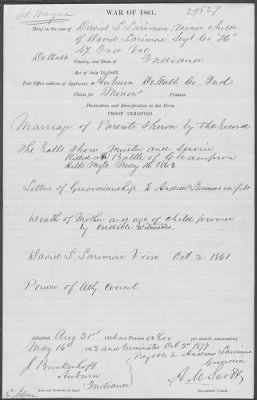 Ft Wayne
WAR OF 1861.
29827
Brief in the case of David L Larimore, Minor child
of David Larimore Sergt Co "H"
47 Ind Vol
DeKalb County, and State of Indiana
Act of July 14, 1862.
Post Office address of Applicant: Auburn DeKalb Co Ind
Claim for Minor Pension.
Declaration and Identification in due Form.
PROOF EXHIBITED.
Marriage of Parents shown by the Record
The Rolls show Muster and Service
Killed at Battle of Champion
Hills Miss May 16th 1863
Letters of Guardianship to Andrew Larimore on file
Death of Mother and age of child proven
by credible witnesses.
David L Larimore born Oct 2 1861
Power of Atty correct
Admitted Aug 31st 1866, to a Pension of $ 8.00 per month, commencing
May 16th and terminates Oct 2d 1877
Payable to Andrew Larimore
Guardian
Auburn
Indiana
A. M. Scott
Examining Clerk.